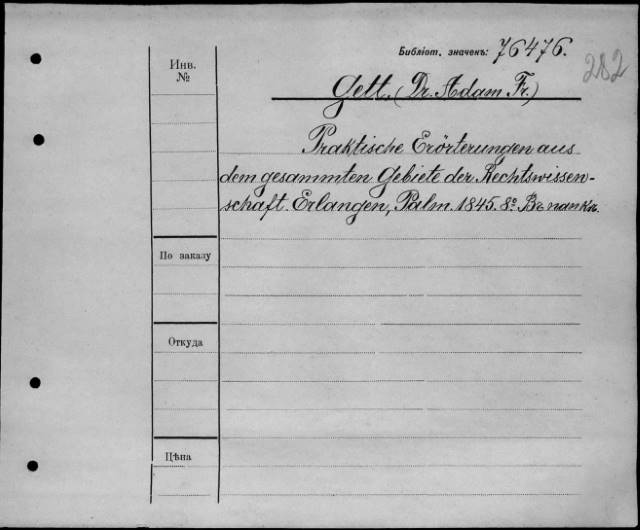 Библіот. значенъ: 76476.
282
Инв.
№
Gett, (Dr. Adam Fr.)
Praktische Erörterungen aus
dem gesammten Gebiete der Rechtswissen-
schaft. Erlangen, Palm. 1845. 8° Въ папкѣ.
По заказу
Откуда
Цѣна